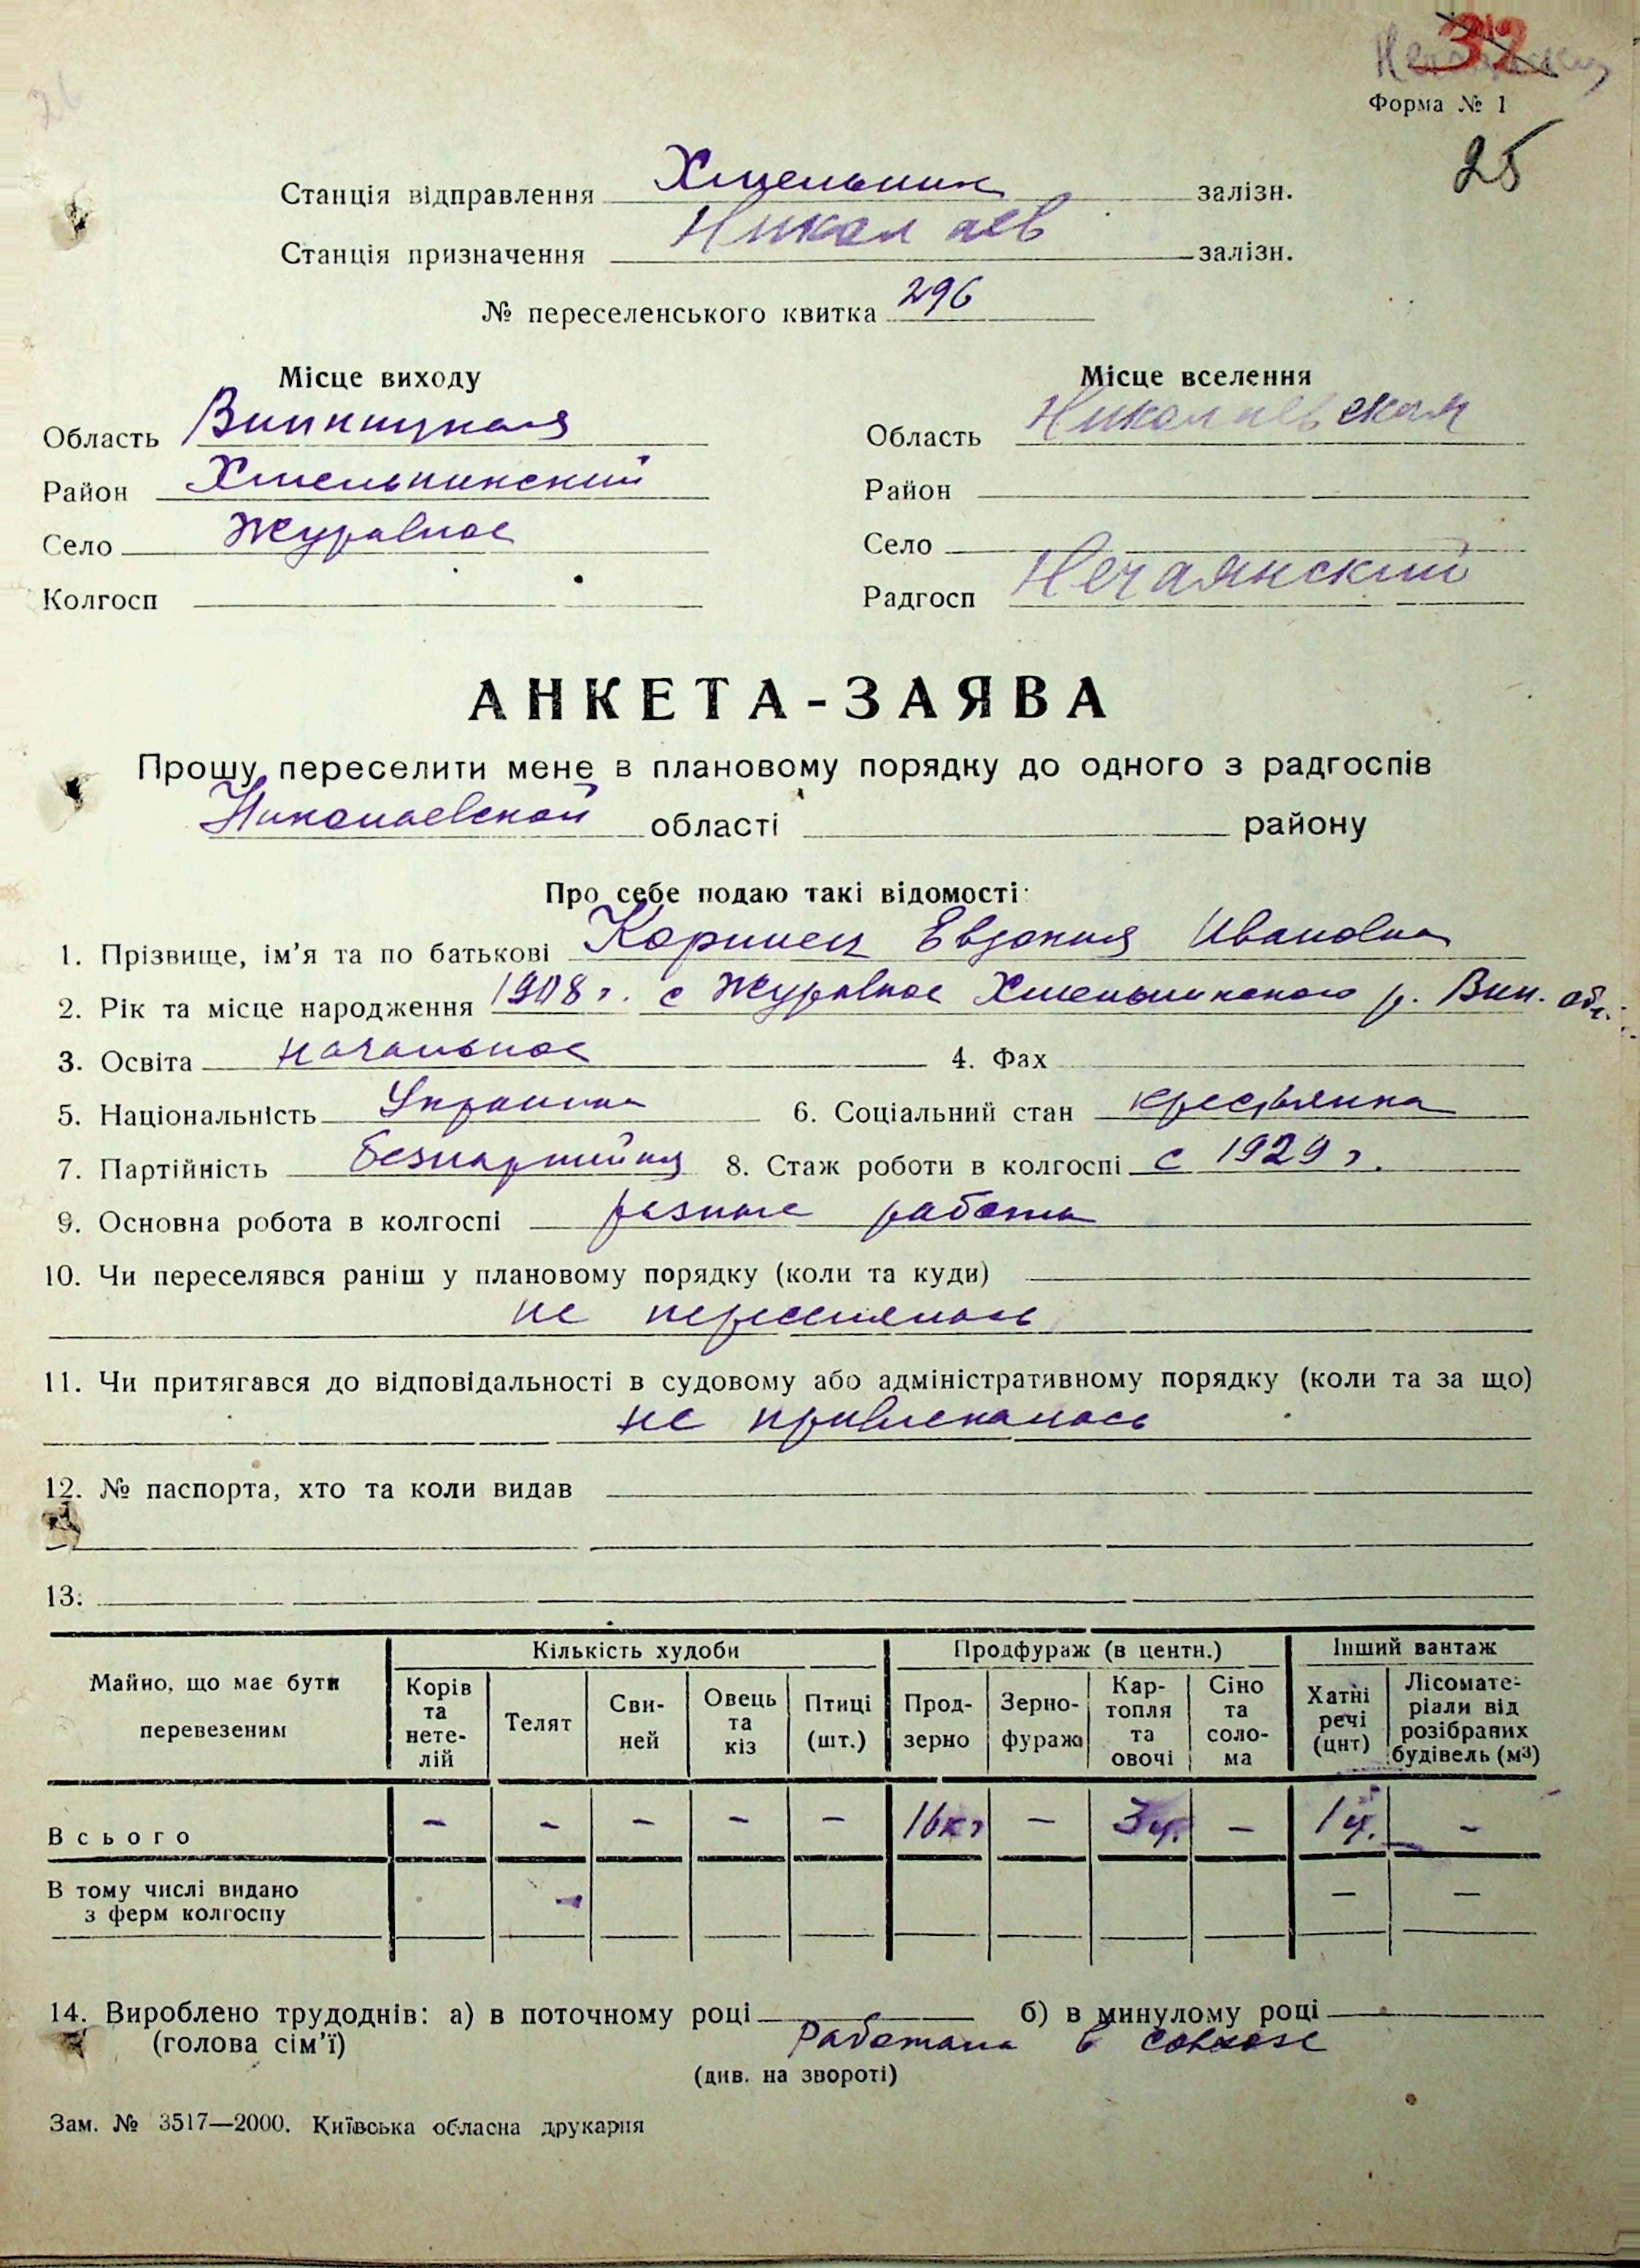 32
Форма № 1
25
Станція відправлення Хмельник залізн.
Станція призначення Николаев залізн.
№ переселенського квитка 296
Місце виходу
Область Винницкая
Район Хмельникский
Село Журавное
Колгосп
Місце вселення
Область Николаевская
Район
Село
Радгосп Нечаянский
АНКЕТА-ЗАЯВА
Прошу переселити мене в плановому порядку до одного з радгоспів
Николаевской області району
Про себе подаю такі відомості:
1. Прізвище, ім'я та по батькові Коринец Евдокия Ивановна
2. Рік та місце народження 1908 г. с Журавное Хмельникского р. Вин. обл.
3. Освіта начальное 4. Фах
5. Національність Украинка 6. Соціальний стан крестьянка
7. Партійність безпартийная 8. Стаж роботи в колгоспі с 1929 г.
9. Основна робота в колгоспі разные работы
10. Чи переселявся раніш у плановому порядку (коли та куди)
не переселялась
11. Чи притягався до відповідальності в судовому або адміністративному порядку (коли та за що)
не привлекалась
12. № паспорта, хто та коли видав
13.
Майно, що має бути перевезеним
Кількість худоби
Продфураж (в центн.)
Інший вантаж
Корів та нете-лій
Телят
Сви-ней
Овець та кіз
Птиці (шт.)
Прод-зерно
Зерно-фуража
Кар-топля та овочі
Сіно та соло-ма
Хатні речі (цнт)
Лісомате-ріали від розібраних будівель (м³)
Всього - - - - - 16кг - 3ц. - 1ц. -
В тому числі видано - - -
з ферм колгоспу
14. Вироблено трудоднів: а) в поточному році б) в минулому році
(голова сім'ї) Работала в совхозе
(див. на звороті)
Зам. № 3517—2000. Київська обласна друкарня